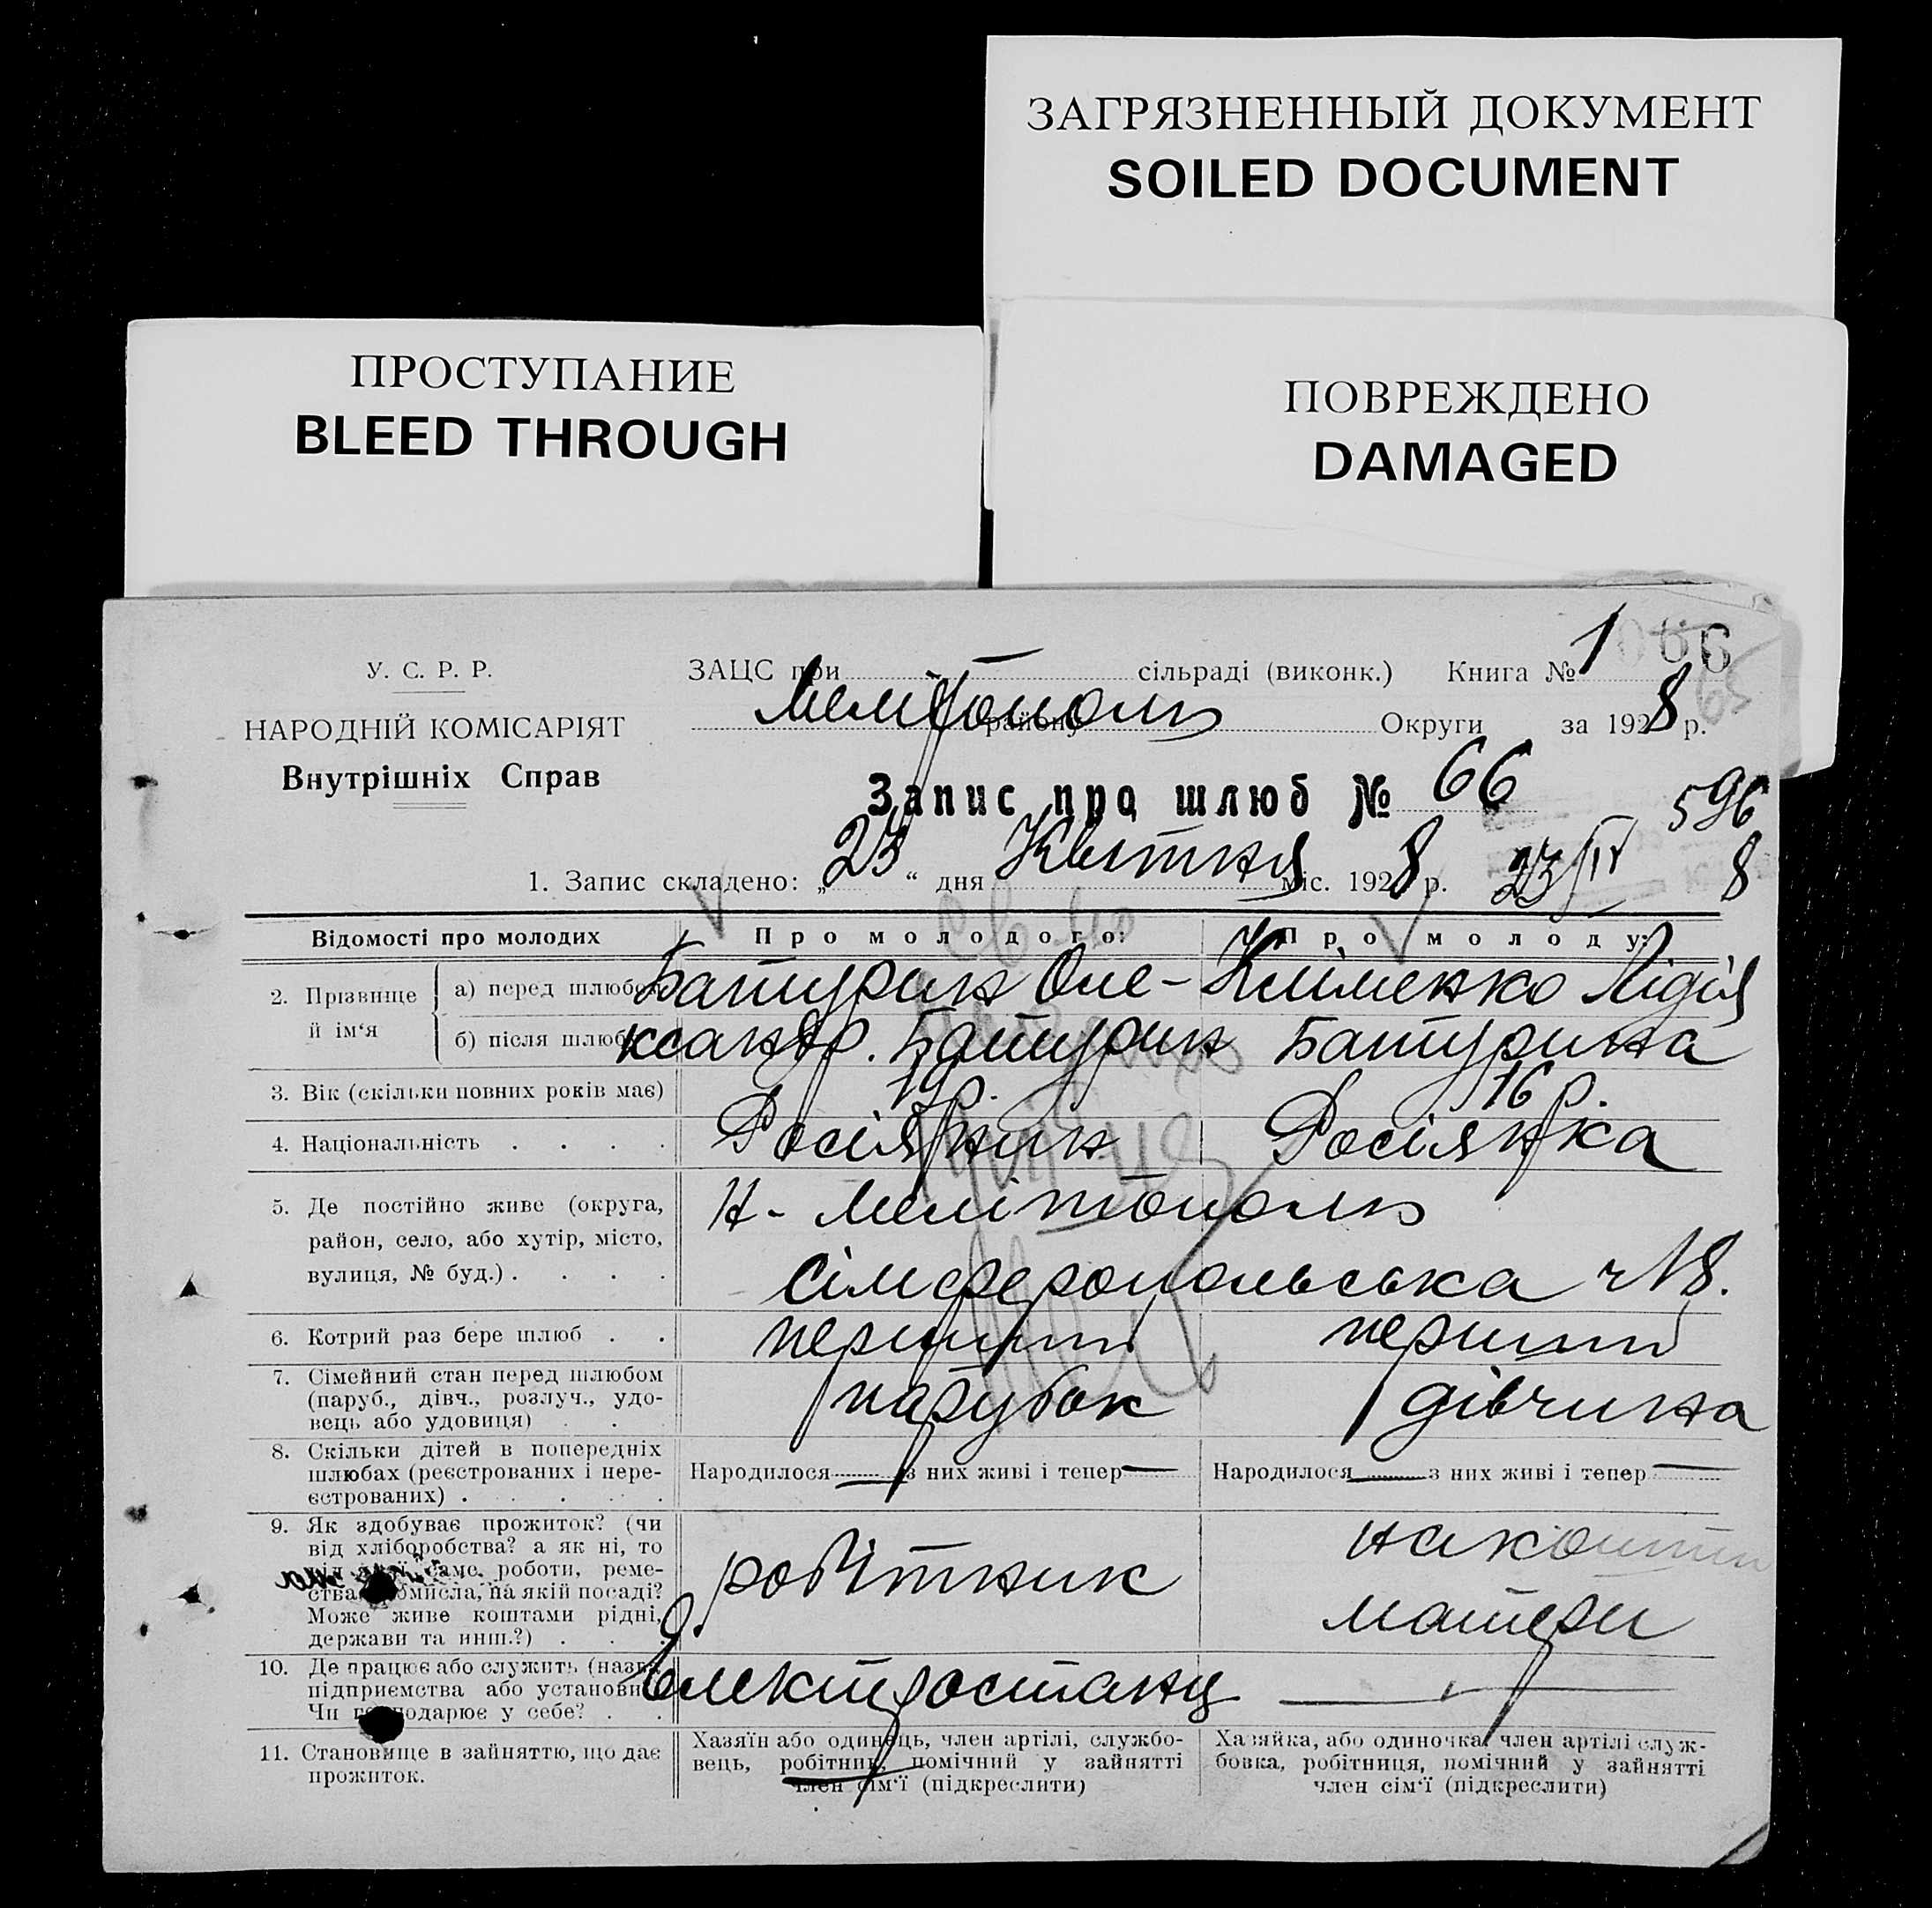 ЗАГРЯЗНЕННЫЙ ДОКУМЕНТ
SOILED DOCUMENT
ПРОСТУПАНИЕ
BLEED THROUGH
ПОВРЕЖДЕНО
DAMAGED
У. С. Р. Р.
НАРОДНІЙ КОМІСАРІЯТ
Внутрішніх Справ
ЗАЦС при — сільраді (виконк.) Книга № 1
Мелітополь району Округи за 1928 р.
65
Запис про шлюб № 66
596
1. Запис складено: „23“ дня Квітня міс. 1928 р. 23/IV 8
Відомості про молодих Про молодого: Про молоду:
2. Прізвище й ім‘я
а) перед шлюбом Батурин Оле- Кліменко Лідія
б) після шлюбу ксандр. Батурин Батурина
3. Вік (скільки повних років має) 19 р. 16 р.
4. Національність . . . . Росіянин Росіянка
5. Де постійно живе (округа, район, село, або хутір, місто, вулиця, № буд.) . . . .
Н- Мелітополь
Сімферопольська ч 18.
6. Котрий раз бере шлюб . . перший перший
7. Сімейний стан перед шлюбом
(паруб., дівч., розлуч., удо-
вець або удовиця) . . .
парубок дівчина
8. Скільки дітей в попередніх
шлюбах (реєстрованих і пере-
єстрованих) . . . . .
Народилося — з них живі і тепер — Народилося — з них живі і тепер —
9. Як здобуває прожиток? (чи
від хліборобства? а як ні, то
саме роботи, реме-
на якій посаді?
Може живе коштами рідні,
держави та инш.?) . . .
робітник
на кошти
матери
10. Де працює або служить (назва
підприємства або установи
Чи господарює у себе? . .
Електростанц —
11. Становище в зайняттю, що дає
прожиток.
Хазяїн або одинець, член артілі, службо-
вець, робітник, помічний у зайнятті
член сім‘ї (підкреслити)
Хазяйка, або одиночка член артілі служ-
бовка, робітниця, помічний у зайнятті
член сім‘ї (підкреслити)